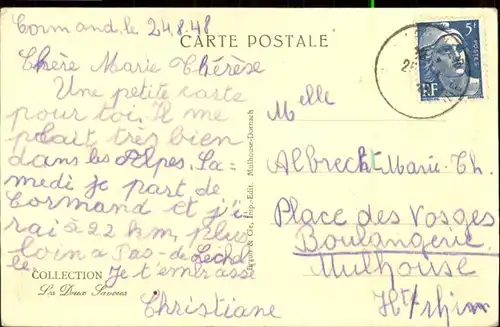 Cormand, le 24.8.48
CARTE POSTALE
Chère Marie Thérèse
Une petite carte
pour toi. Il me
plait très bien
dans les Alpes. Sa-
medi je part de
Cormand et j'i-
rai à 22 km. plus
loin a Pas- de
le. Je t'embrasse
Christiane
COLLECTION
Les Deux Savoies
& Cie, Imp.-Edit. Mulhouse-Dornach
5F
POSTES
RF
Melle
Albrecht-Marie-Th.
Place des Vosges
Boulangerie
Mulhouse
Ht/rhin